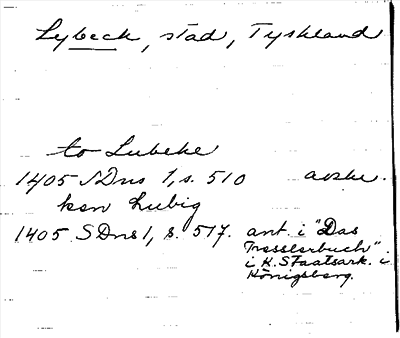 Lybeck, stad, Tyskland
to Lubeke
1405 SDns 1, s. 510 avskr.
ken Lubig
1405 SDns 1, s. 517. ant. i "Das
Tresslerbuch".
i K. Staatsark. i
Königsberg.